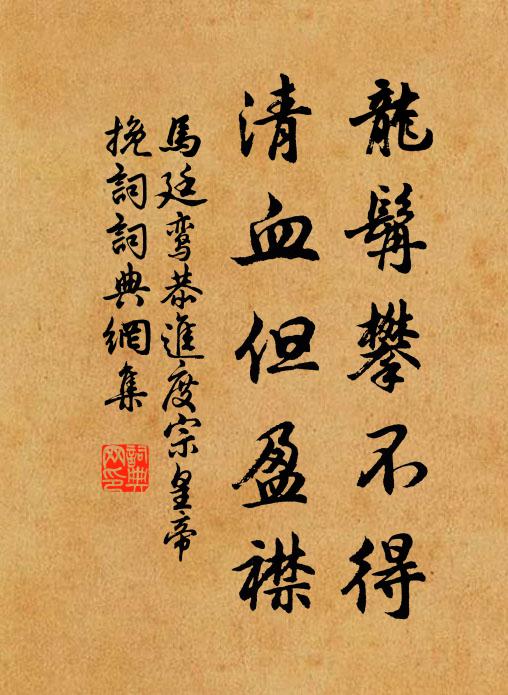 龍髯攀不得
清血但盈襟
馬廷鸾恭進度宗皇帝
挽詞詞典網集
詞典
网印